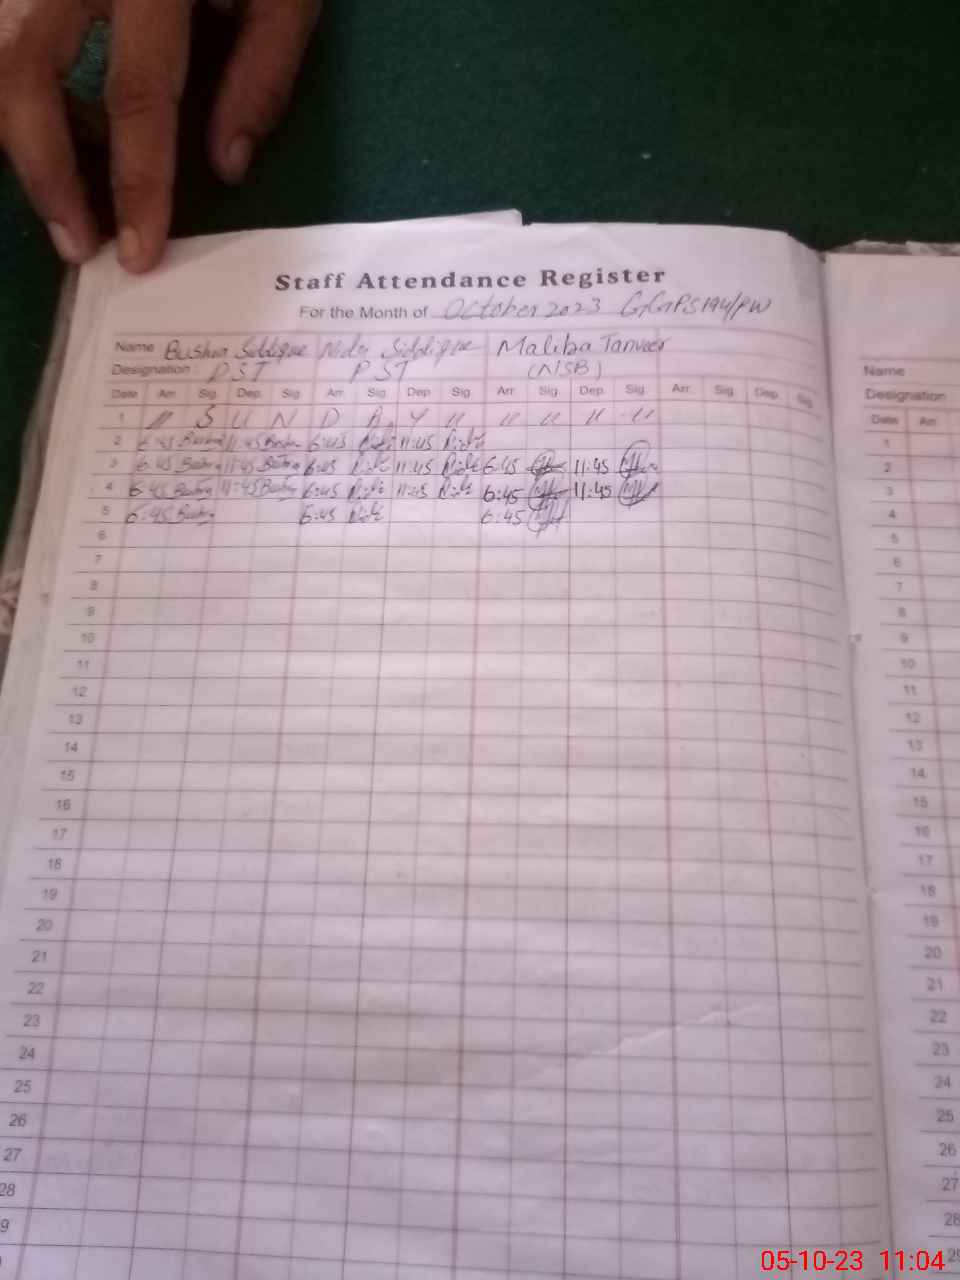 Staff Attendance Register
For the Month of October 2023 GGPS 194/PW
Name Bushra Siddique Nida Siddique Maliba Tanveer
Designation: PST PST (NSB)
Date Arr. Sig. Dep. Sig. Arr. Sig. Dep. Sig. Arr. Sig. Dep. Sig. Arr. Sig. Dep. Sig.
1 " S U N D A Y " " " " "
2 6:45 Bushra 11:45 Bushra 6:45 Nida 11:45 Nida
3 6:45 Bushra 11:45 Bushra 6:45 Nida 11:45 Nida 6:45 11:45
4 6:45 Bushra 11:45 Bushra 6:45 Nida 11:45 Nida 6:45 11:45
5 6:45 Bushra 6:45 Nida 6:45
6
7
8
9
10
11
12
13
14
15
16
17
18
19
20
21
22
23
24
25
26
27
28
9
Name
Designation
Date Arr.
1
2
3
4
5
6
7
8
9
10
11
12
13
14
15
16
17
18
19
20
21
22
23
24
25
26
27
28
29
05-10-23 11:04